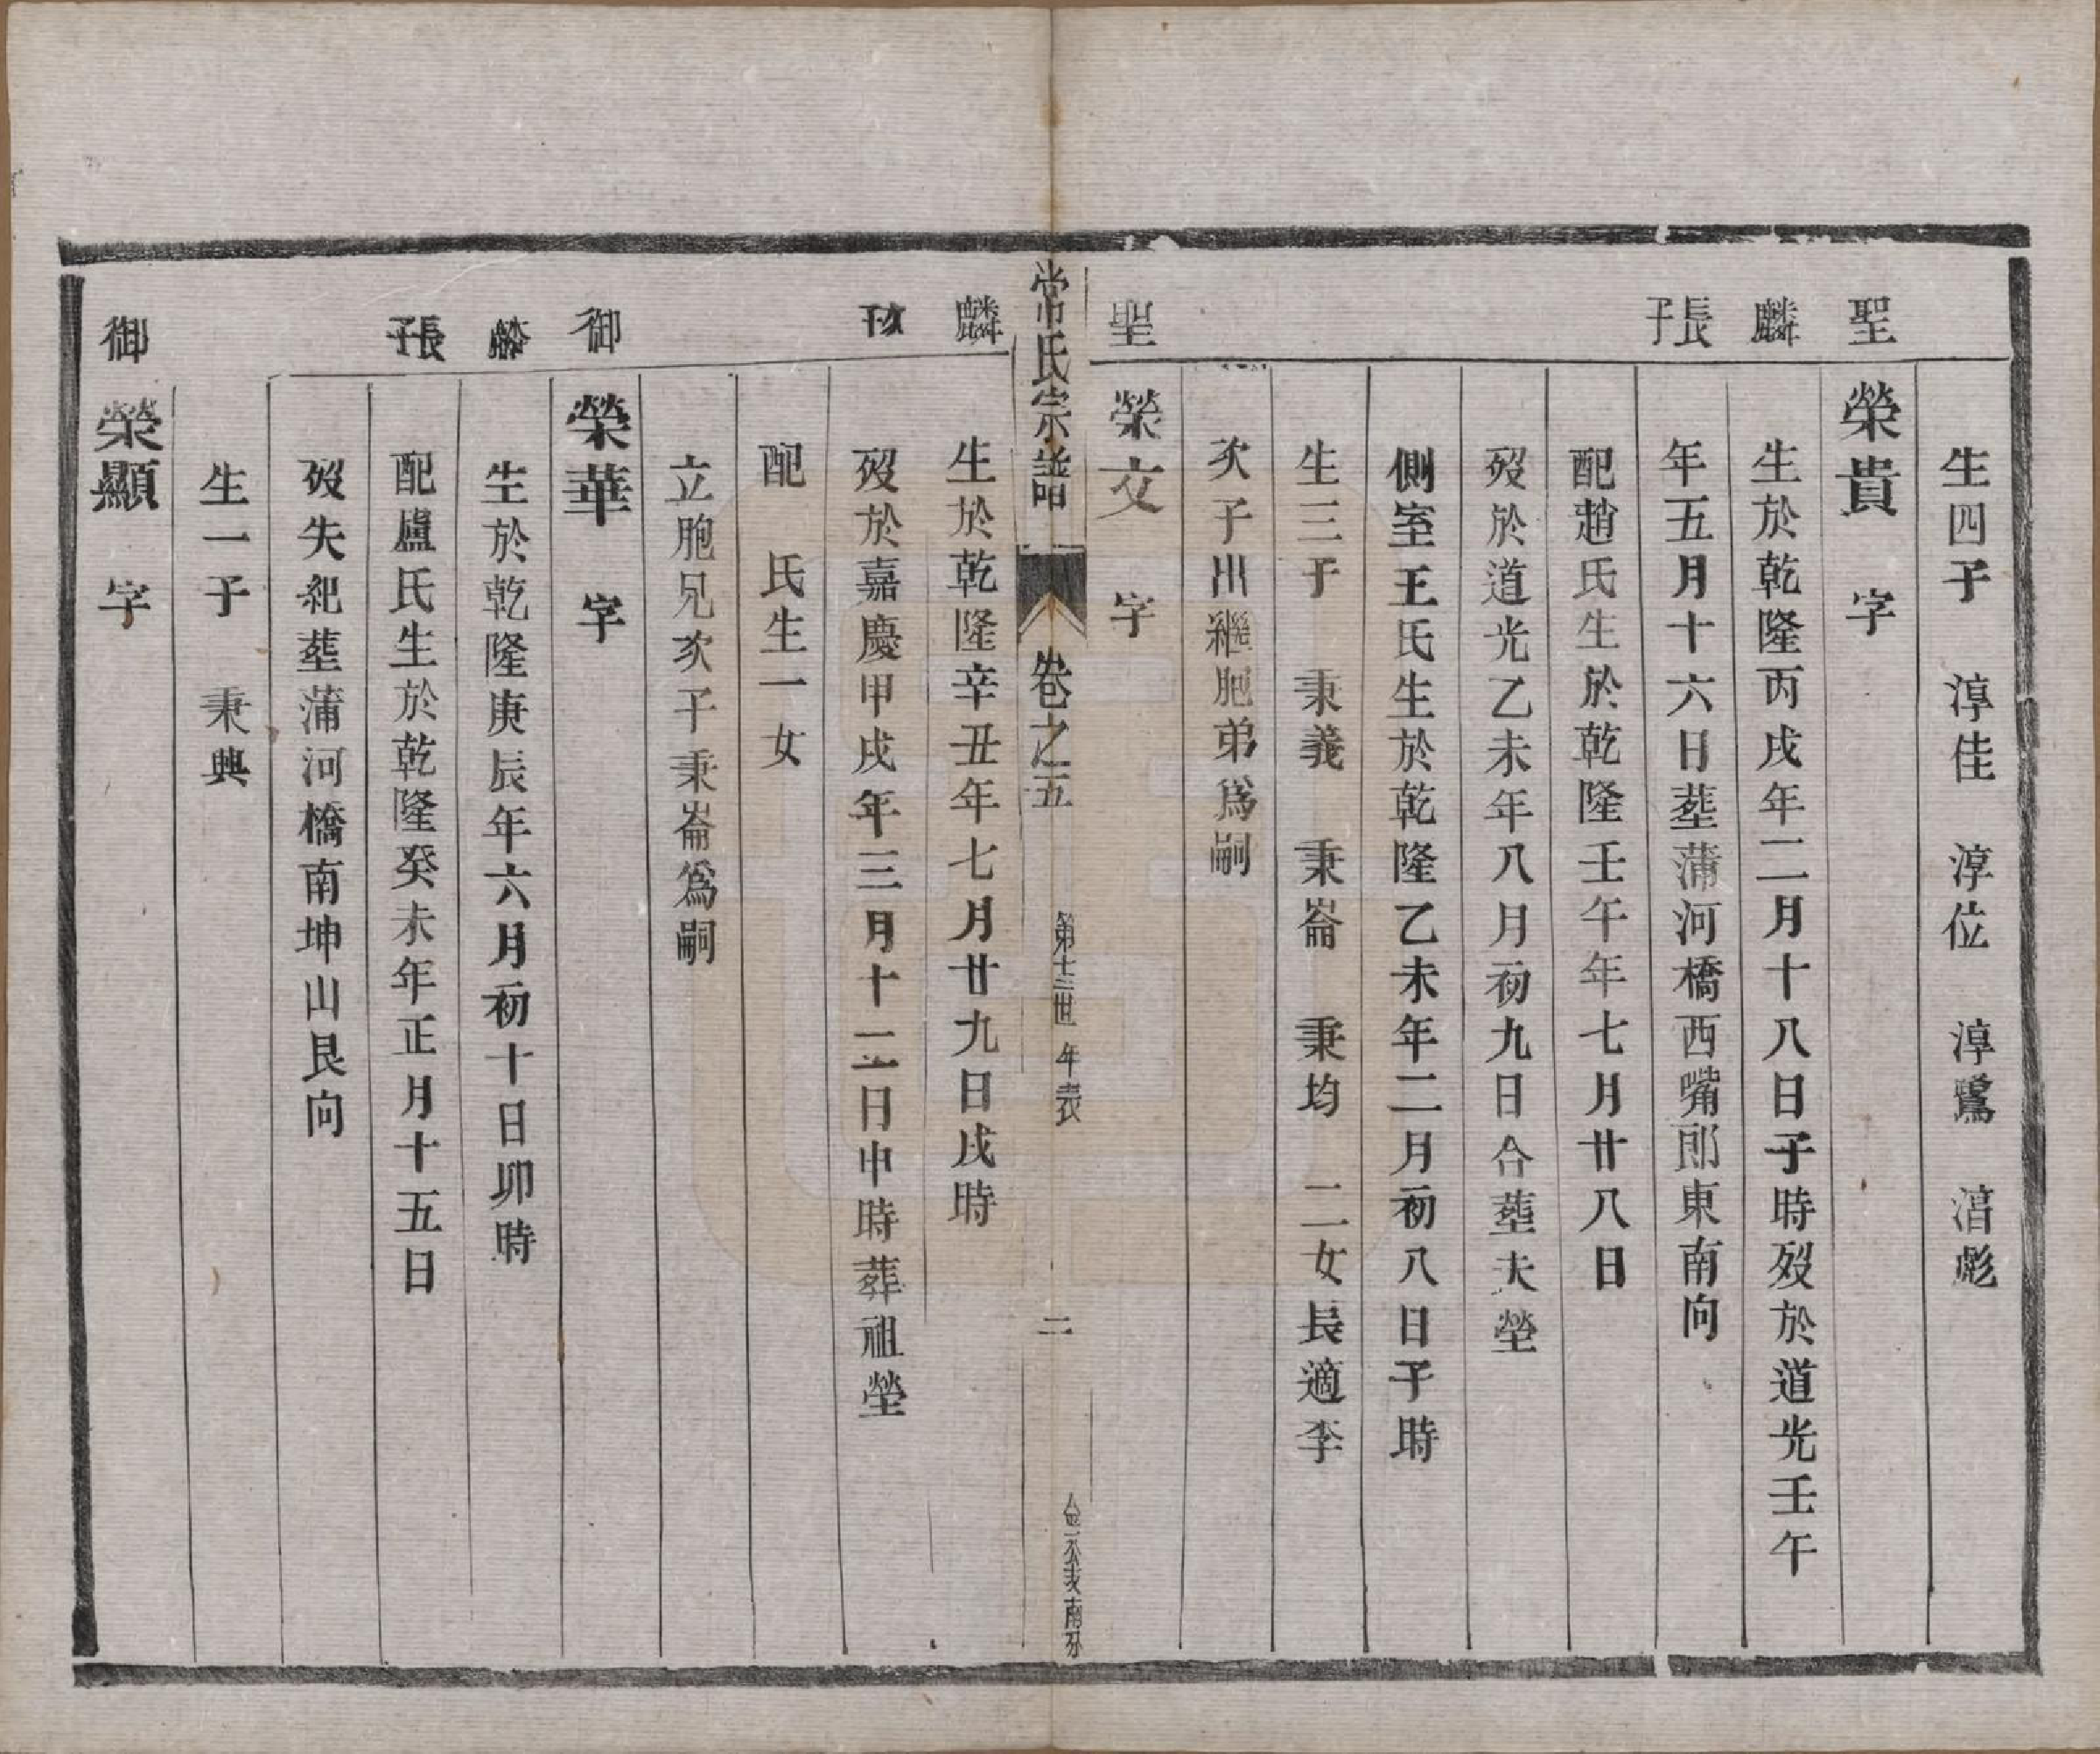 生四子　淳佳　淳位　淳鷺　淯彪
聖　榮貴　字
麟　生於乾隆丙戌年二月十八日子時歿於道光壬午
長子　年五月十六日塟蒲河橋西嘴郎東南向
配趙氏生於乾隆壬午年七月廿八日
歿於道光乙未年八月初九日合塟夫塋
側室王氏生於乾隆乙未年二月初八日子時
生三子　秉義　秉崙　秉均　二女長適李
次子出繼胞弟爲嗣
聖　榮文　字
常氏宗譜　卷之五　第十三世　年表　二
麟　生於乾隆辛丑年七月廿九日戌時
次子　歿於嘉慶甲戌年三月十二日申時葬祖塋
配　氏生一女
立胞兄次子秉崙爲嗣
御　榮華　字
麟　生於乾隆庚辰年六月初十日卯時
長子　配盧氏生於乾隆癸未年正月十五日
歿失紀塟蒲河橋南坤山艮向
生一子　秉興
御　榮顯　字